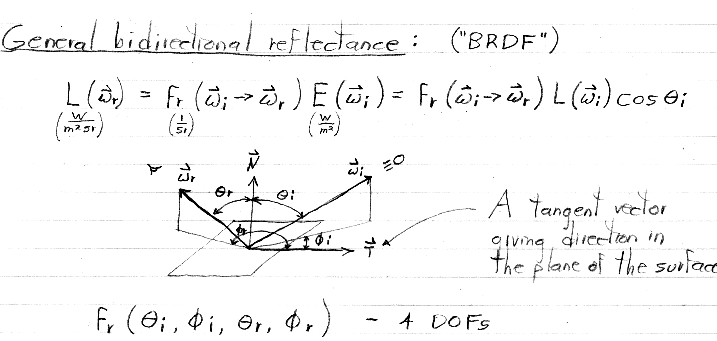 General bidirectional reflectance : ("BRDF")
L(ω⃗r) = Fr (ω⃗i → ω⃗r) E(ω⃗i) = Fr (ω⃗i → ω⃗r) L(ω⃗i) cos θi
(W/m² sr) (1/sr) (W/m²)
ω⃗r N⃗ ω⃗i
θr θi
ϕr ϕi T⃗
A tangent vector
giving direction in
the plane of the surface
Fr (θi, ϕi, θr, ϕr) - 4 DOFs